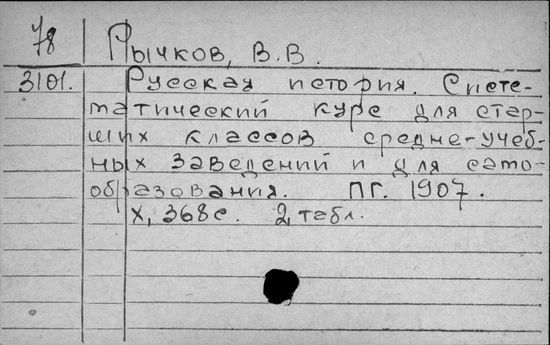 78
Рычков, В.В.
3101. Русская история. Систе-
матический курс для стар-
ших классов средне-учеб-
ных заведений и для само-
образования. ПГ. 1907.
X, 368с. 2, табл.